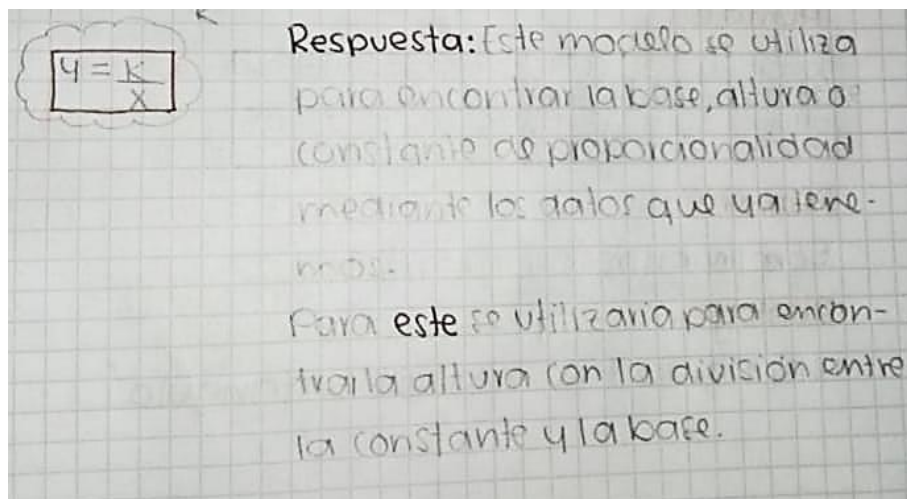 y = k
x
Respuesta: Este modelo se utiliza
para encontrar la base, altura o
constante de proporcionalidad
mediante los datos que ya tene-
mos.
Para este se utilizaria para encon-
trar la altura con la división entre
la constante y la base.